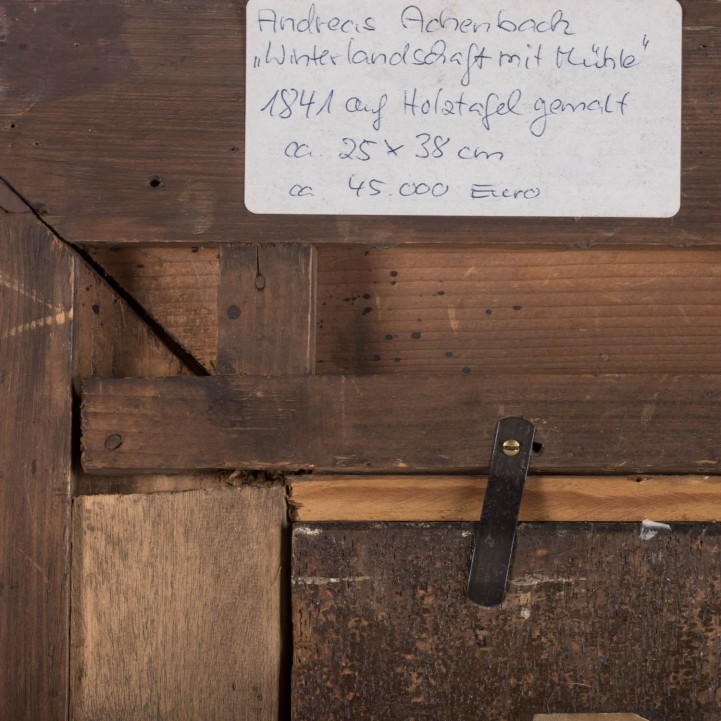 Andreas Achenbach
„Winterlandschaft mit Mühle"
1841 auf Holztafel gemalt
ca. 25 x 38 cm
ca 45.000 Euro